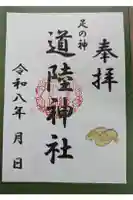 奉拝
足の神
道陸神社
令和八年 月 日